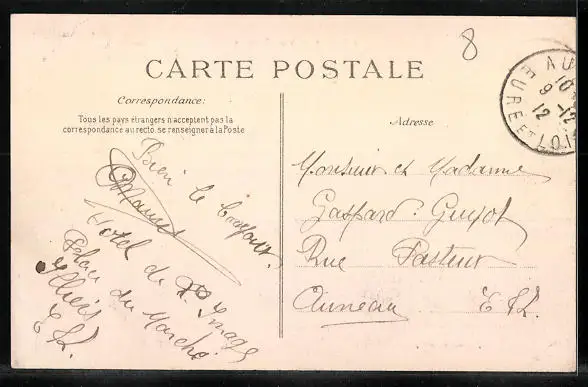 8
CARTE POSTALE
Correspondance:
Tous les pays étrangers n'acceptent pas la
correspondance au recto. se renseigner à la Poste
Bien le bonjour.
Hotel de l'Image
Place du Marché
Illiers
E & L.
Adresse
Monsieur et Madame
Gaspard-Guyot
Rue Pasteur
Auneau E & L.
AU
10
9 -12
12
EURE ET LOIR